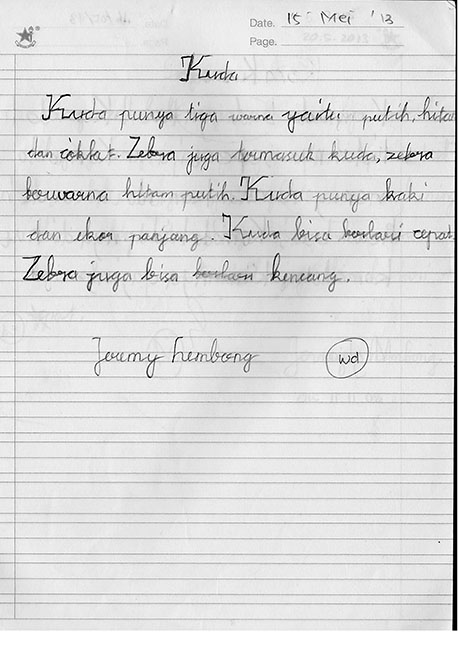 Date. 15 Mei '13
Page.
Kuda
Kuda punya tiga warna yaitu putih, hitam
dan coklat. Zebra juga termasuk kuda, zebra
berwarna hitam putih. Kuda punya kaki
dan ekor panjang. Kuda bisa berlari cepat.
Zebra juga bisa berlari kencang.
Jeremy Lembong
wd